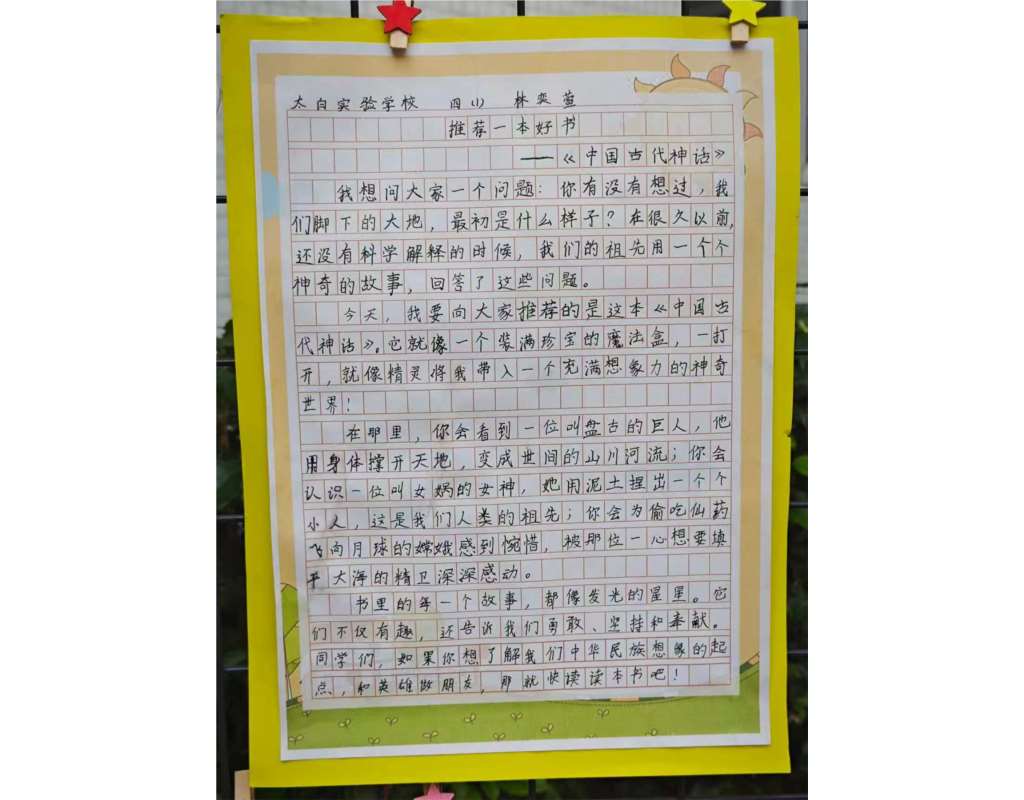 太白实验学校 四(1) 林奕萱
推荐一本好书
——《中国古代神话》
我想问大家一个问题：你有没有想过，我
们脚下的大地，最初是什么样子？在很久以前，
还没有科学解释的时候，我们的祖先用一个个
神奇的故事，回答了这些问题。
今天，我要向大家推荐的是这本《中国古
代神话》。它就像一个装满珍宝的魔法盒，一打
开，就像精灵将我带入一个充满想象力的神奇
世界！
在那里，你会看到一位叫盘古的巨人，他
用身体撑开天地，变成世间的山川河流；你会
认识一位叫女娲的女神，她用泥土捏出一个个
小人，这是我们人类的祖先；你会为偷吃仙药
飞向月球的嫦娥感到惋惜，被那位一心想要填
平大海的精卫深深感动。
书里的每一个故事，都像发光的星星。它
们不仅有趣，还告诉我们勇敢、坚持和奉献。
同学们，如果你想了解我们中华民族想象的起
点，和英雄做朋友，那就快读读本书吧！